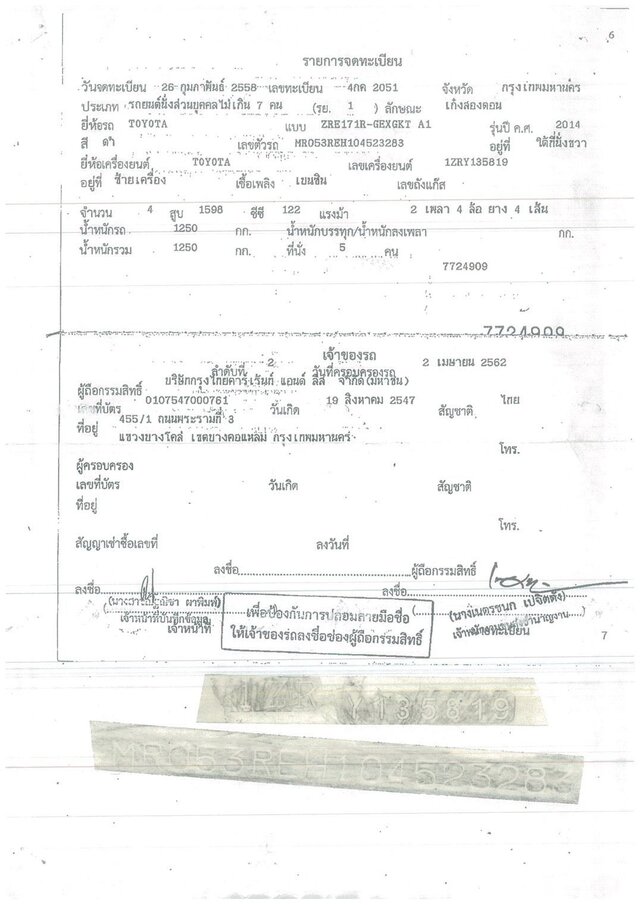 6
รายการจดทะเบียน
วันจดทะเบียน 26 กุมภาพันธ์ 2558 เลขทะเบียน 4กค 2051 จังหวัด กรุงเทพมหานคร
ประเภท รถยนต์นั่งส่วนบุคคลไม่เกิน 7 คน (รย. 1 ) ลักษณะ เก๋งสองตอน
ยี่ห้อรถ TOYOTA แบบ ZRE171R-GEXGKT A1 รุ่นปี ค.ศ. 2014
สี ดำ เลขตัวรถ MR053REH104523283 อยู่ที่ ใต้ที่นั่งขวา
ยี่ห้อเครื่องยนต์ TOYOTA เลขเครื่องยนต์ 1ZRY135819
อยู่ที่ ซ้ายเครื่อง เชื้อเพลิง เบนซิน เลขถังแก๊ส
จำนวน 4 สูบ 1598 ซีซี 122 แรงม้า 2 เพลา 4 ล้อ ยาง 4 เส้น
น้ำหนักรถ 1250 กก. น้ำหนักบรรทุก/น้ำหนักลงเพลา กก.
น้ำหนักรวม 1250 กก. ที่นั่ง 5 คน
7724909
7724909
เจ้าของรถ
ลำดับที่ 2 วันที่ครอบครองรถ 2 เมษายน 2562
ผู้ถือกรรมสิทธิ์ บริษัทกรุงไทยคาร์เร้นท์ แอนด์ ลีส จำกัด(มหาชน)
เลขที่บัตร 0107547000761 วันเกิด 19 สิงหาคม 2547 สัญชาติ ไทย
ที่อยู่ 455/1 ถนนพระรามที่ 3
แขวงบางโคล่ เขตบางคอแหลม กรุงเทพมหานคร
โทร.
ผู้ครอบครอง
เลขที่บัตร วันเกิด สัญชาติ
ที่อยู่
โทร.
สัญญาเช่าซื้อเลขที่ ลงวันที่
ลงชื่อ ผู้ถือกรรมสิทธิ์
ลงชื่อ ลงชื่อ
ผาพิมพ์)
เจ้าหน้าที่บันทึกข้อมูล
เจ้าหน้าที่
เพื่อป้องกันการปลอมลายมือชื่อ
ให้เจ้าของรถลงชื่อช่องผู้ถือกรรมสิทธิ์
(นางเนตรชนก
นายทะเบียน
7
Y135819
MR053REH104523283